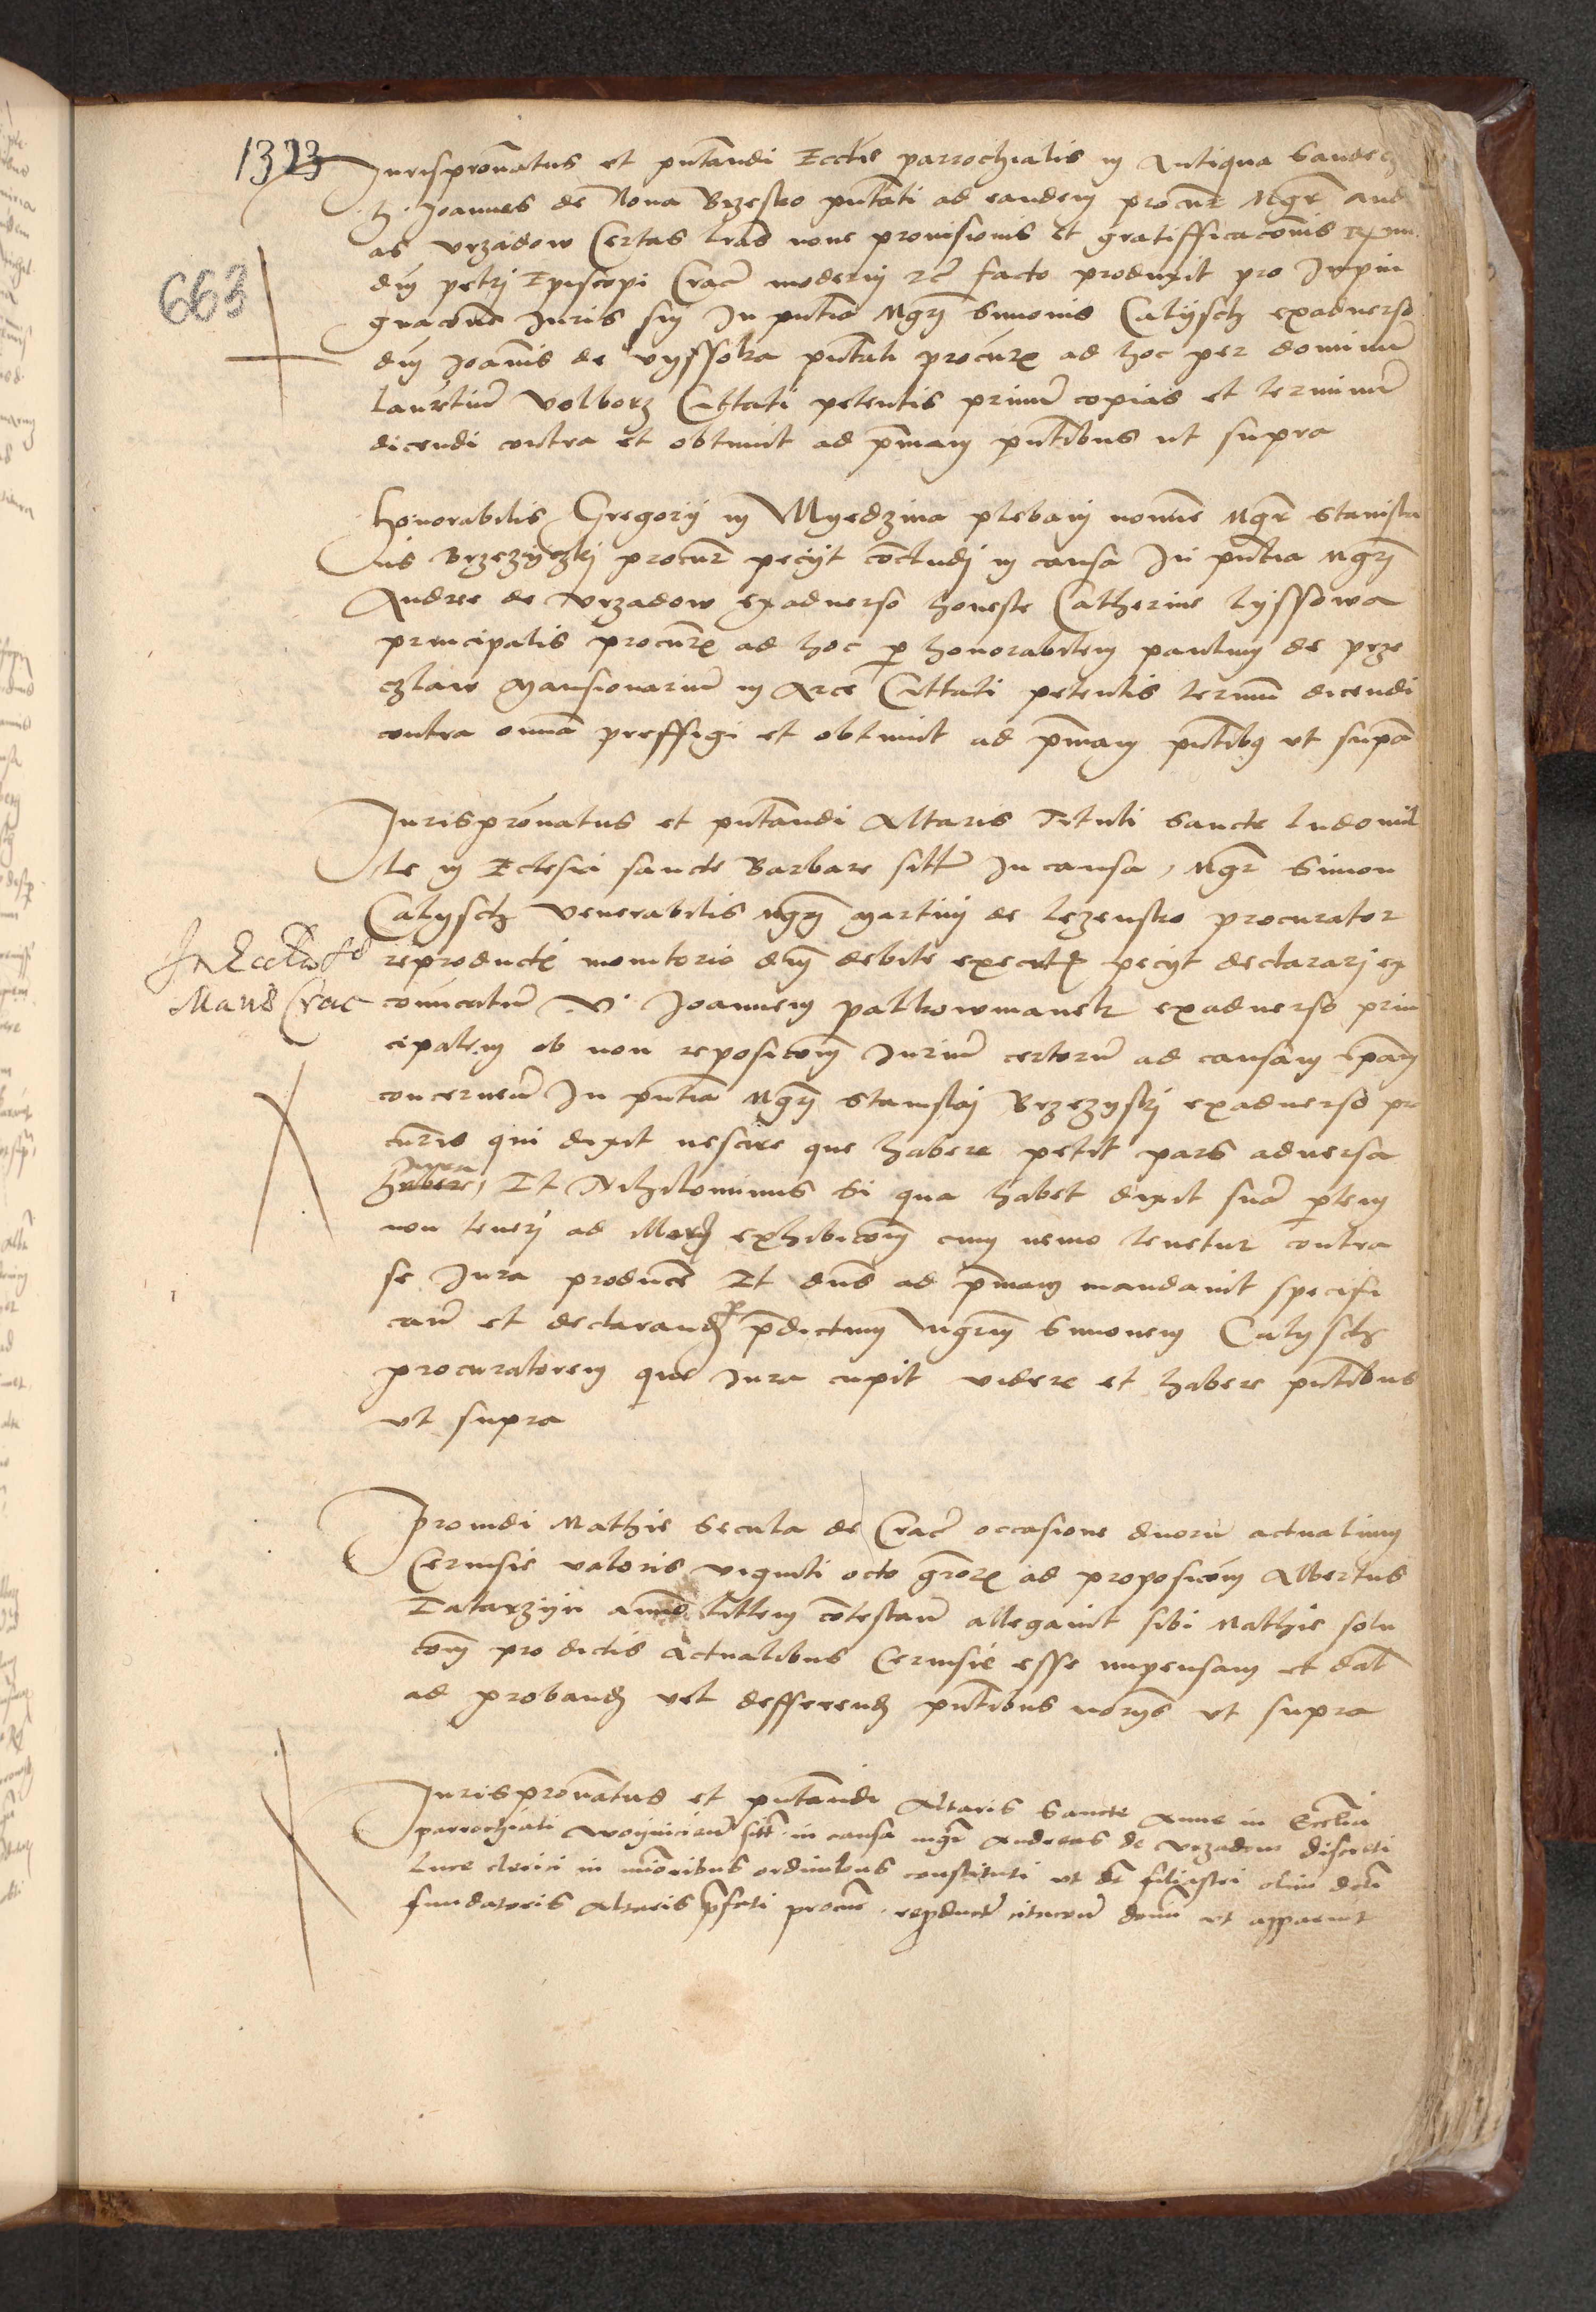 1323
Jurispronatus et pntandi Eccle parrochialis in Antiqua Sandecz
h. Joannes de Nova Brzesko pntati ad eandem procur Mgr And
as Vrzadow Certas lras nove provisionis et gratifficaconis
663
dni petri Episcopi Crac moderni facto produxit pro Inpin
gnacone Juris sui In pntia Mgri Simonis Calysch exadverso
dni Joannis de Vyssoka pntati procur ad hoc per dominum
laurtium Volborz Cittati petentis primum copias et terminum
dicendi contra et obtinuit ad primam pntibus ut supra
honorabilis Gregorii in Myedzina plebani nomine Mgr Stanisla
us Brzezyczki procur pecyt concludi in causa In pntia Mgri
Andree de Vrzadow exadverso honeste Catherine lyssowa
principalis procur ad hoc per honorabilem paulum de prze
czlaw Mansionarium in Arce Cittati petentis terminum dicendi
contra omnia preffigi et obtinuit ad primam pntibus ut supra
Jurispronatus et pntandi Altaris Tituli Sancte ludomil
le in Eclesia sancte Barbare sitt In causa, Mgr Simon
Calysch Venerabilis Mgri Martini de lezensko procurator
reproducti monitorio dni debite executi pecyt declarari ex
Mans Crac
coicatum V. Joannem palkowmanek exadverso prin
cipalem ob non reposicom Jurium certorum ad causam ipam
concernen In pntia Mgri Stanislai Brzezyski exadverso pro
curis qui dixit nescire que habere petit pars adversa
Jura
habere, Et Nihilominus Si qua habet dixit suam ptem
non teneri ad illorum exhibicom cum nemo tenetur contra
se Jura producere Et dns ad primam mandavit specifi
care et declarand p predictum Mgrum Simonem Calysch
procuratorem que Jura cupit videre et habere pntibus
ut supra
Providi Mathie Secula de Crac occasione duorum actualium
Cervisie valoris viginti octo gror ad proposicom Albertus
Tatarzyn animo littem contestan allegavit sibi Mathie solu
com pro dictis Actualibus Cervisie esse impensam et dat
ad proband vel defferend pntibus notariis ut supra
Jurispronatus et pntandi Altaris Sancte Anne in Ecclia
parrochiali Woynicien sitt in causa mgr Andreas de Vrzadow discreti
luce clerici in minoribus ordinibus constituti ut filiastri olim
fundatoris Altaris prefati procur reproducta citacione ut apparuit